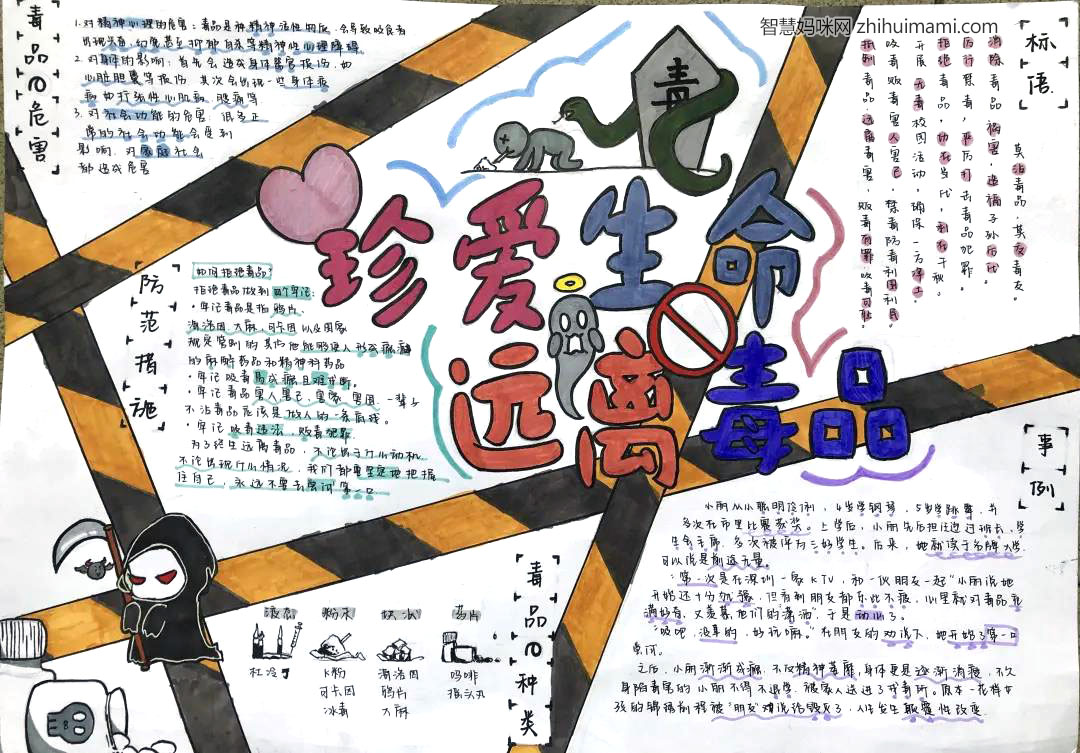 智慧妈咪网 zhihuimami.com
毒品の危害
1.对精神心理的危害：毒品是种精神活性物质，会导致吸食者
出现失眠、幻觉甚至抑郁自杀等精神性心理障碍
2.对身体的影响：首先会造成身体器官损伤，如
心脏胆囊等损伤 其次会出现一些身体疾
病如扩张性心肌病、腹痛等
3.对社会功能的危害，很多正
常的社会功能会受到
影响，对家庭社会
都造成危害
毒
标语
莫沾毒品，莫友毒友。
消除毒品祸害，造福子孙后代
厉行禁毒，严厉打击毒品犯罪。
拒绝毒品，功在当代，利在千秋。
开展无毒校园活动，确保一方净土
吸毒贩毒害人害己，禁毒防毒利国利民。
抵制毒品远离毒害，贩毒有罪吸毒可耻。
珍爱生命
远离毒品
防范措施
如何拒绝毒品？
拒绝毒品做到四个牢记：
·牢记毒品是指鸦片、
海洛因、大麻，可卡因以及国家
规定管制的其他能够使人形成瘾癖
的麻醉药品和精神科药品
·牢记吸毒易成瘾且难戒断。
·牢记毒品害人害己，害家，害国，一辈子
不沾毒品应该是做人的一条底线。
·牢记吸毒违法，贩毒犯罪
为了终生远离毒品，不论出于什么动机，
不论出现什么情况，我们都要坚定地把握
住自己，永远不要去尝试第一口
事例
小丽从小聪明伶俐，4岁学钢琴，5岁学跳舞，并
多次在市里比赛获奖。上学后，小丽先后担任过班长、学
生会主席，多次被评为三好学生。后来，她就读于名牌大学
可以说是前途无量。
"第一次是在深圳一家KTV，和一伙朋友一起"小丽说她
开始还十分犹豫，但看到朋友都乐此不疲，心里就对毒品充
满好奇，又羡慕他们的"潇洒"，于是动心了。
"吸吧，没事的，好玩嘛。"在朋友的劝说下，她开始了第一口
尝试。
之后，小丽渐渐成瘾，不仅精神萎靡，身体更是逐渐消瘦，不久
身陷毒尾的小丽不得不退学，被家人送进了戒毒所。原本一花样女
孩的锦绣前程被"朋友"劝说给毁灭了，人生发生颠覆性改变
毒品の种类
液态 粉末 块状 药片
杜冷丁 K粉 海洛因 吗啡
可卡因 鸦片 摇头丸
冰毒 大麻